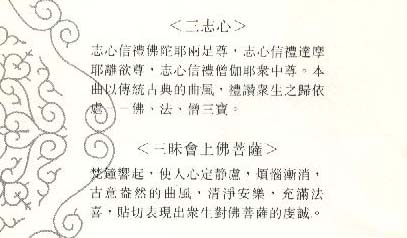 ＜三志心＞
志心信禮佛陀耶兩足尊，志心信禮達摩
耶離欲尊，志心信禮僧伽耶衆中尊。本
曲以傳統古典的曲風，禮讚衆生之歸依
處—佛、法、僧三寶。
＜三昧會上佛菩薩＞
梵鐘響起，使人心定靜慮，煩惱漸消，
古意盎然的曲風，清淨安樂，充滿法
喜，貼切表現出衆生對佛菩薩的虔誠。